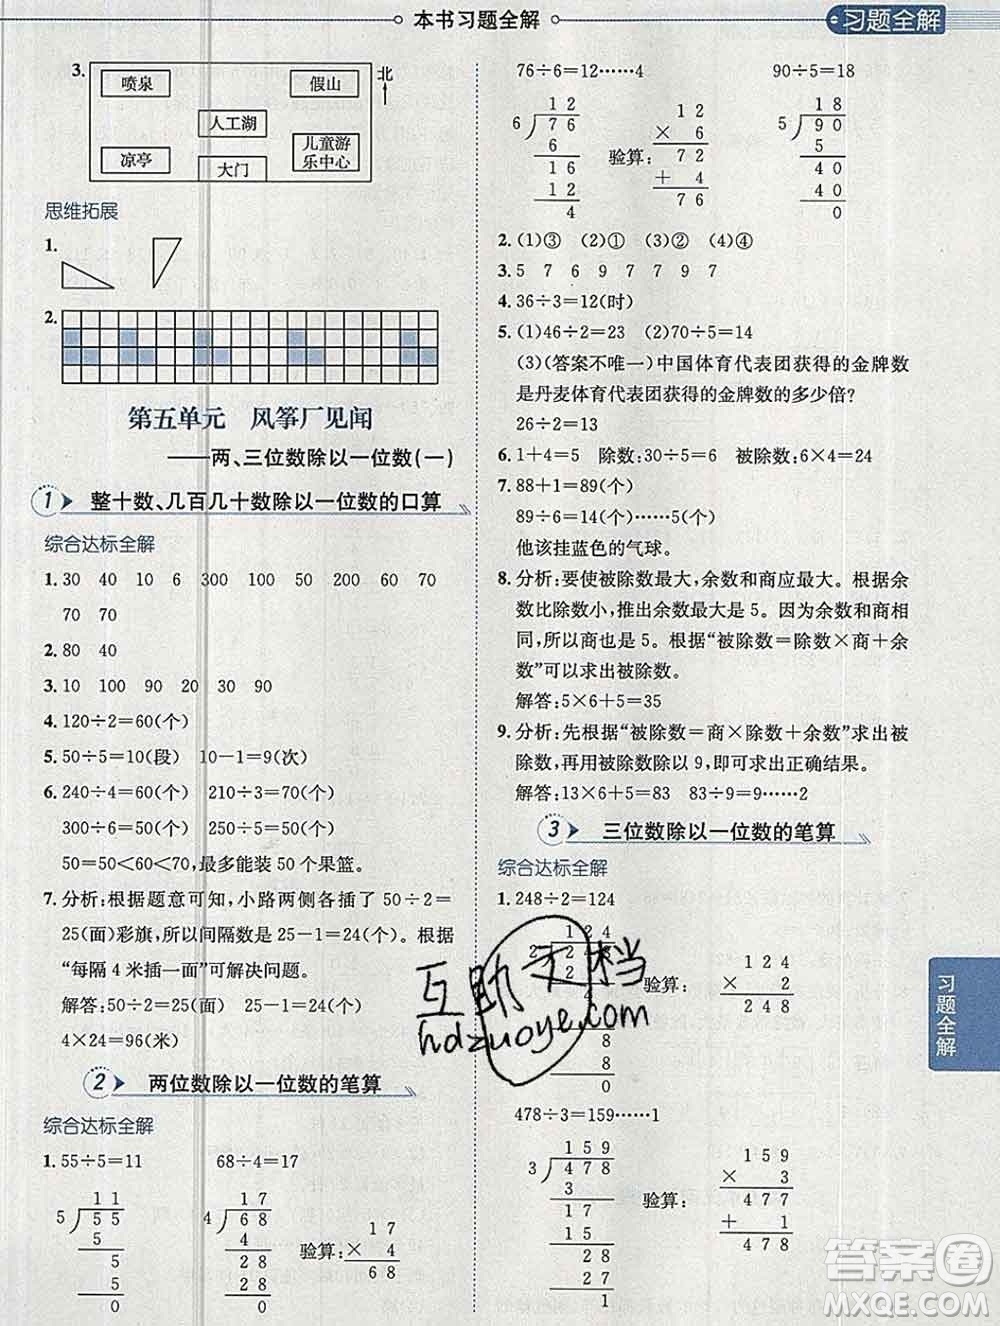 本书习题全解
习题全解
3.
喷泉
假山
北
人工湖
凉亭
大门
儿童游
乐中心
思维拓展
1.
2.
第五单元 风筝厂见闻
——两、三位数除以一位数(一)
1 整十数、几百几十数除以一位数的口算
综合达标全解
1. 30 40 10 6 300 100 200 60 70
70 70
2. 80 40
3. 10 100 90 20 30 90
4. 120÷2=60(个)
5. 50÷5=10(段) 10-1=9(次)
6. 240÷4=60(个) 210÷3=70(个)
300÷6=50(个) 250÷5=50(个)
50=50<60<70,最多能装 50 个果篮。
7. 分析:根据题意可知,小路两侧各插了 50÷2=
25(面)彩旗,所以间隔数是 25-1=24(个)。根据
“每隔 4 米插一面”可解决问题。
解答:50÷2=25(面) 25-1=24(个)
4×24=96(米)
2 两位数除以一位数的笔算
综合达标全解
1. 55÷5=11 68÷4=17
11
5 55
5
5
5
0
17
4 68
4
28
28
0
验算:
17
× 4
68
76÷6=12……4 90÷5=18
12
6 76
6
16
12
4
验算:
12
× 6
72
+ 4
76
18
5 90
5
40
40
0
2. (1)③ (2)① (3)② (4)④
3. 5 7 6 9 7 7 9 7
4. 36÷3=12(时)
5. (1)46÷2=23 (2)70÷5=14
(3)(答案不唯一)中国体育代表团获得的金牌数
是丹麦体育代表团获得的金牌数的多少倍?
26÷2=13
6. 1+4=5 除数:30÷5=6 被除数:6×4=24
7. 88+1=89(个)
89÷6=14(个)……5(个)
他该挂蓝色的气球。
8. 分析:要使被除数最大,余数和商应最大。根据余
数比除数小,推出余数最大是 5。因为余数和商相
同,所以商也是 5。根据“被除数=除数×商+余
数”可以求出被除数。
解答:5×6+5=35
9. 分析:先根据“被除数=商×除数+余数”求出被
除数,再用被除数除以 9,即可求出正确结果。
解答:13×6+5=83 83÷9=9……2
3 三位数除以一位数的笔算
综合达标全解
1. 248÷2=124
124
2 248
2
4
8
8
0
验算:
124
× 2
248
互助文档
hdzuoye.com
478÷3=159……1
159
3 478
3
17
15
28
27
1
验算:
159
× 3
477
+ 1
478
习题全解
答案圈
MXQE.COM